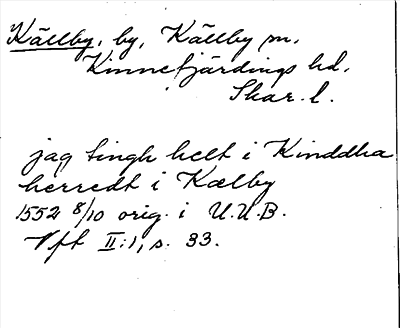 Källby, by, Källby sn.
Kinnefjärdings hd.
Skar. l.
jag tingh helt i Kinddha
herredt i Kælby
1552 8/10 orig. i U.U.B.
Vft II:1, s. 33.